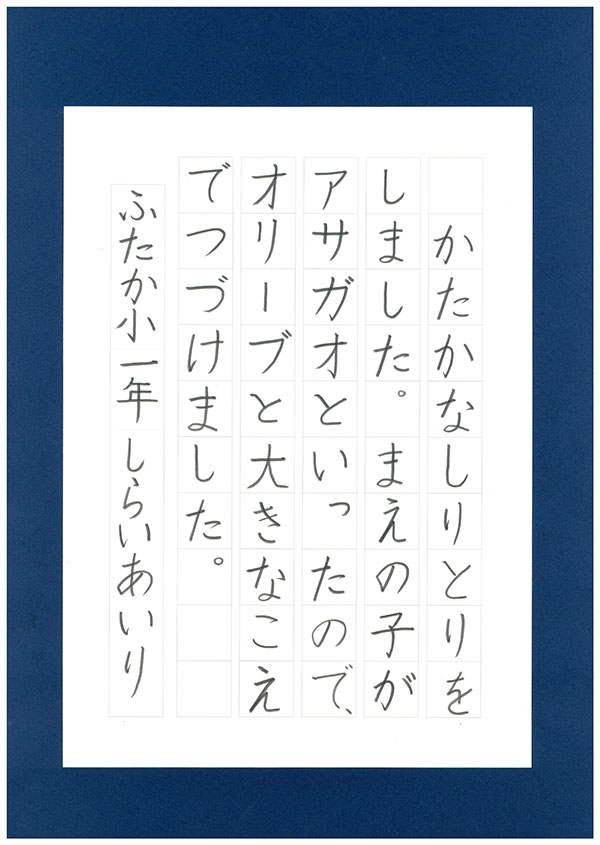 かたかなしりとりを
しました。まえの子が
アサガオといったので、
オリーブと大きなこえ
でつづけました。
ふたか小一年しらいあいり